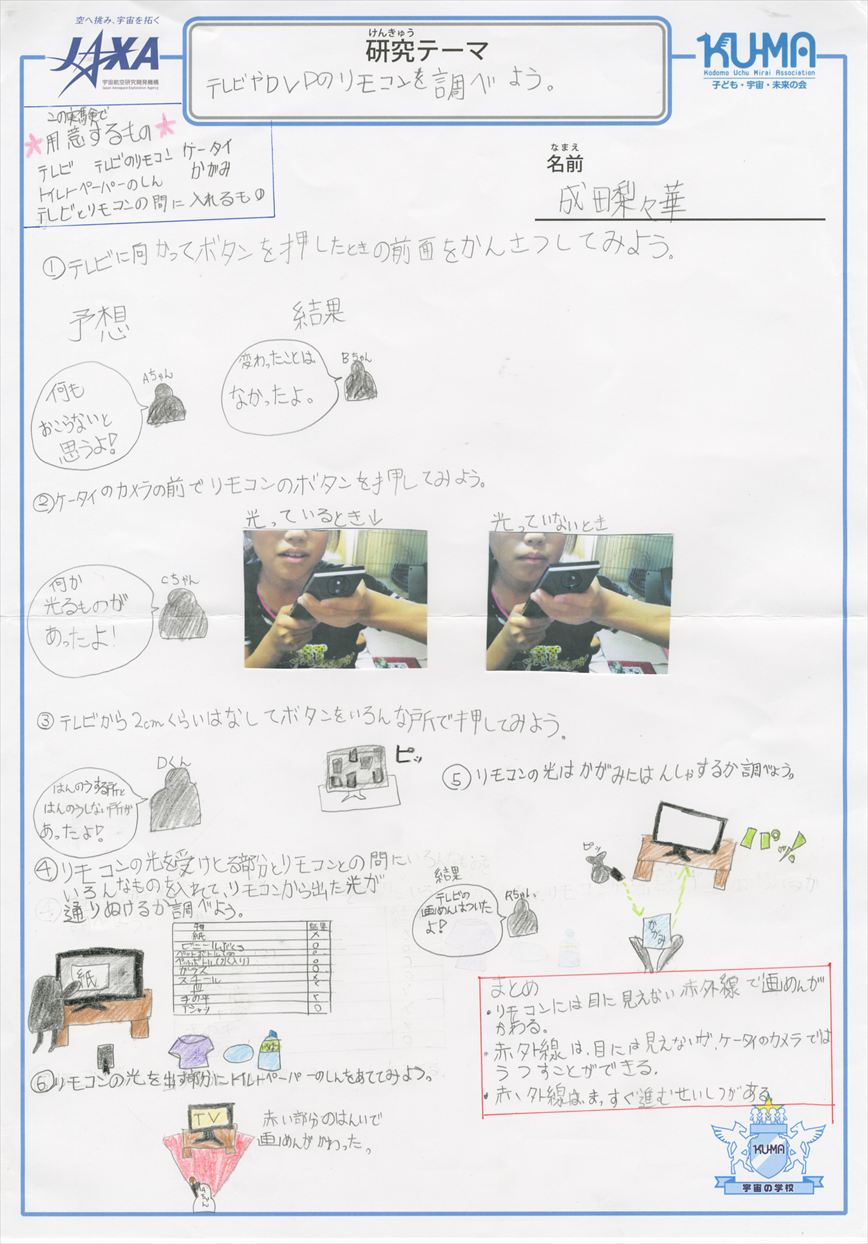 空へ挑み、宇宙を拓く
JAXA
宇宙航空研究開発機構
Japan Aerospace Exploration Agency
けんきゅう
研究テーマ
テレビやDVDのリモコンを調べよう。
KU-MA
Kodomo Uchu Mirai Association
子ども・宇宙・未来の会
この実験で
用意するもの
テレビ テレビのリモコン ケータイ
トイレトペーパーのしん かがみ
テレビとリモコンの間に入れるもの
なまえ
名前
成田梨々華
①テレビに向かってボタンを押したときの前面をかんさつしてみよう。
予想
結果
Aちゃん
何も
おこらないと
思うよ!
Bちゃん
変わったことは
なかったよ。
②ケータイのカメラの前でリモコンのボタンを押してみよう。
光っているとき↓
光っていないとき
Cちゃん
何か
光るものが
あったよ!
③テレビから2cmくらいはなしてボタンをいろんな所で押してみよう。
Dくん
はんのうする所と
はんのうしない所が
あったよ!
ピッ
④リモコンの光を受けとる部分とリモコンとの間に
いろんなものを入れて、リモコンから出た光が
通りぬけるか調べよう。
物 結果
紙 ×
ガラス
スチール
手の平
Tシャツ
紙
⑤リモコンの光はかがみにはんしゃするか調べよう。
ピッ
パッ!
かがみ
結果
テレビの
画めんはついた
よ!
Aちゃん
⑥リモコンの光を出す部分にトイレトペーパーのしんをあててみよう。
TV
赤い部分のはんいで
画めんがかわった。
まとめ
・リモコンには目に見えない赤外線で画めんが
かわる。
・赤外線は、目には見えないが、ケータイのカメラでは
うつすことができる.
・赤い外線はまっすぐ進むせいしつがある
KU-MA
宇宙の学校